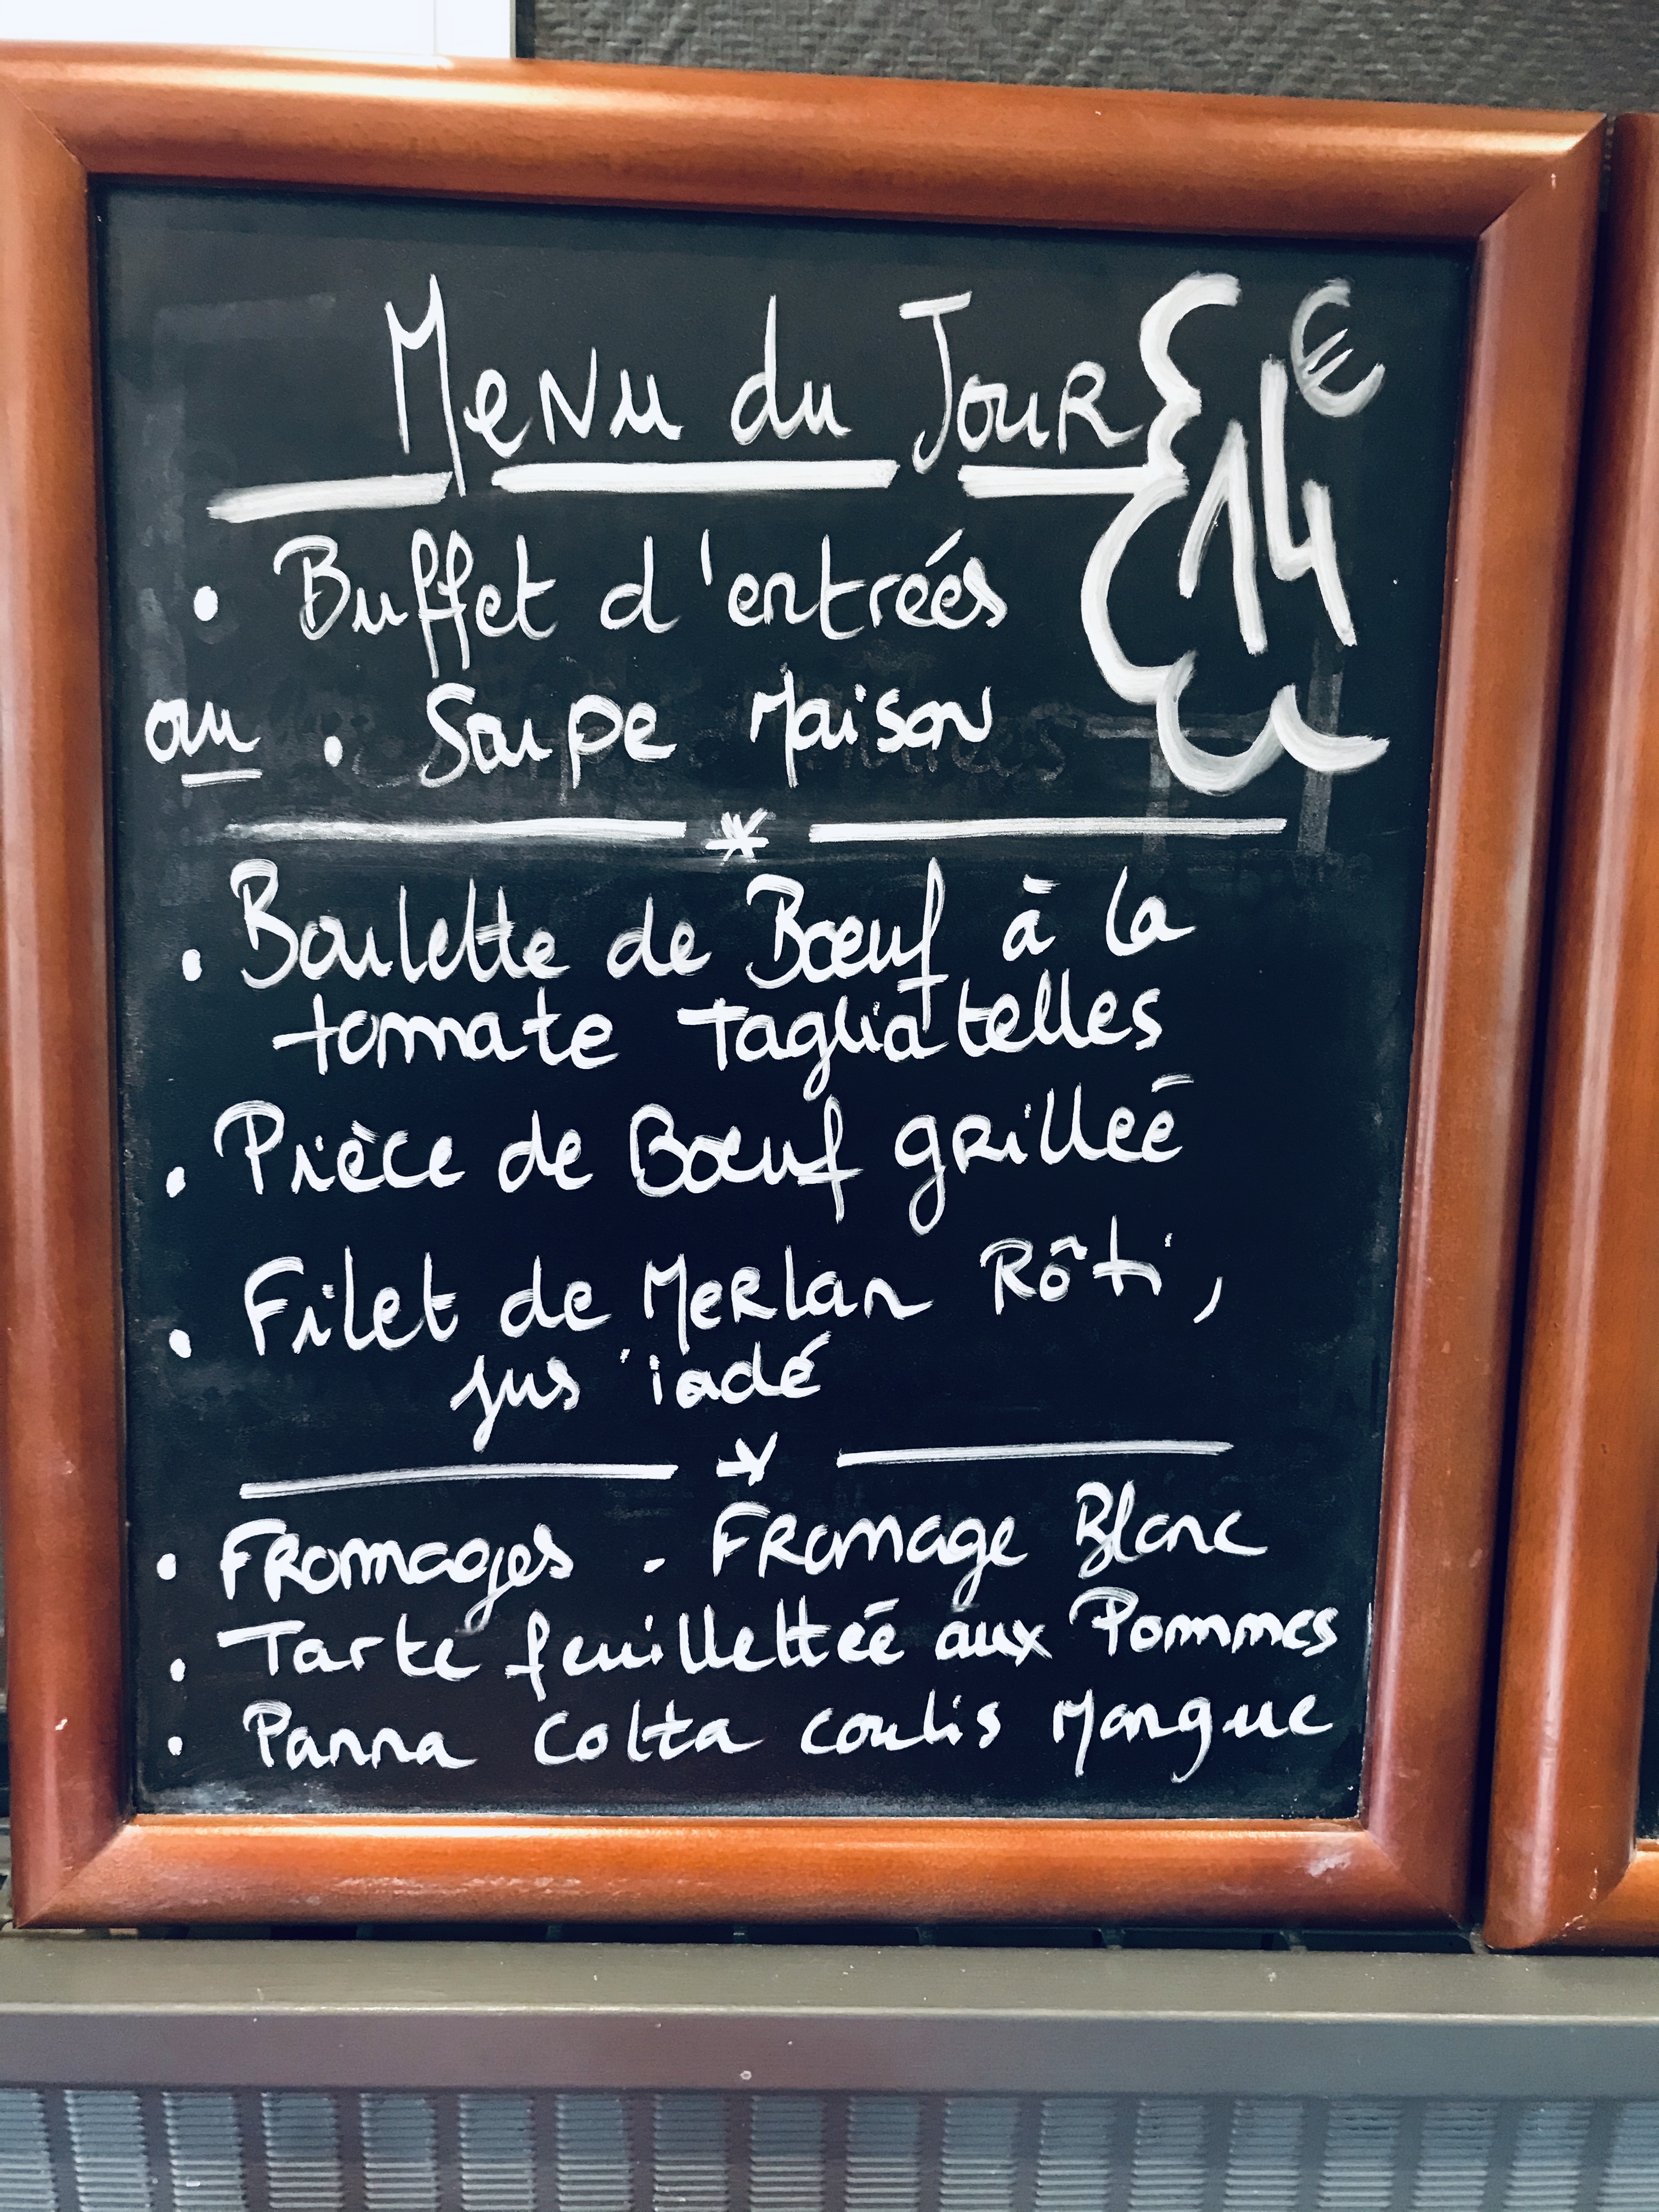 Menu du Jour
14€
• Buffet d'entrées
ou • Soupe Maison
*
• Boulette de Bœuf à la
tomate Tagliatelles
• Pièce de Bœuf grilleé
• Filet de Merlan Rôti,
jus iodé
*
• Fromages . Fromage Blanc
• Tarte feuilletteé aux Pommes
• Panna Cotta coulis Mangue